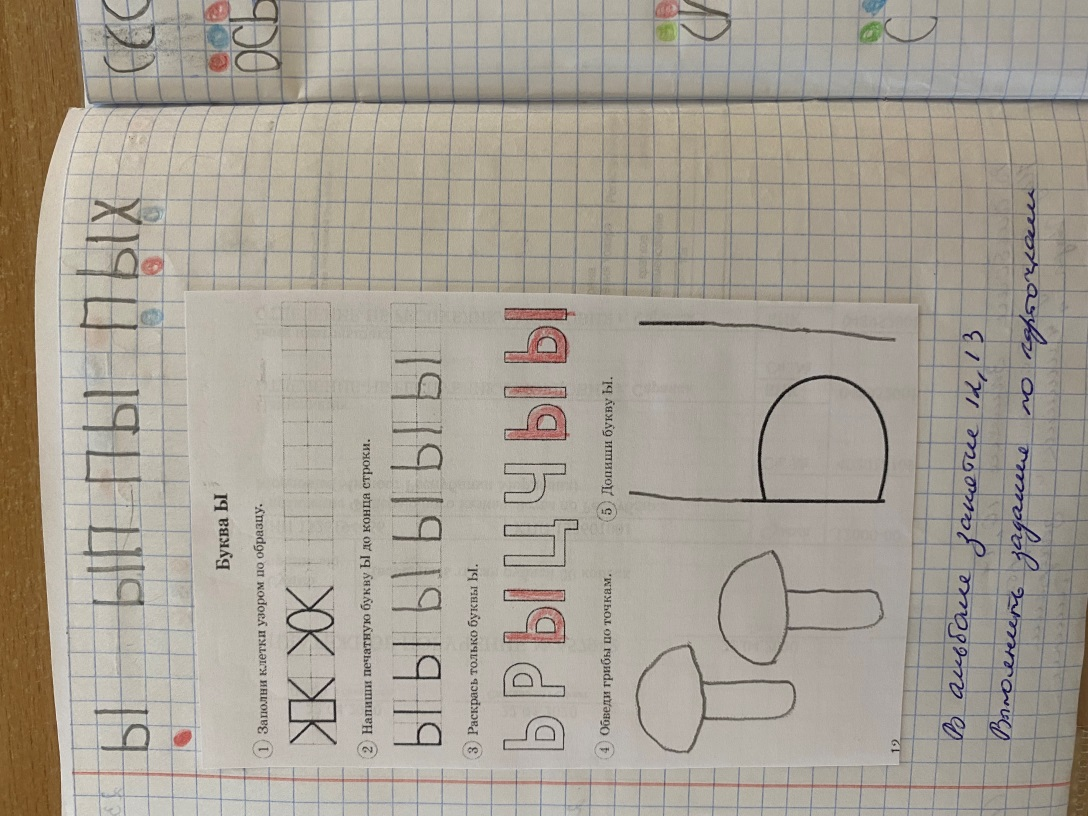 Ы ЫП ПЫ ПЫХ
Буква Ы
1 Заполни клетки узором по образцу.
2 Напиши печатную букву Ы до конца строки.
Ы Ы Ы Ы Ы Ы Ы Ы
3 Раскрась только буквы Ы.
Ь Р Ы Ц Ч Ы Ы
4 Обведи грибы по точкам.
5 Допиши букву Ы.
12
В альбоме занятие 12, 13
Выполнить задание по карточкам